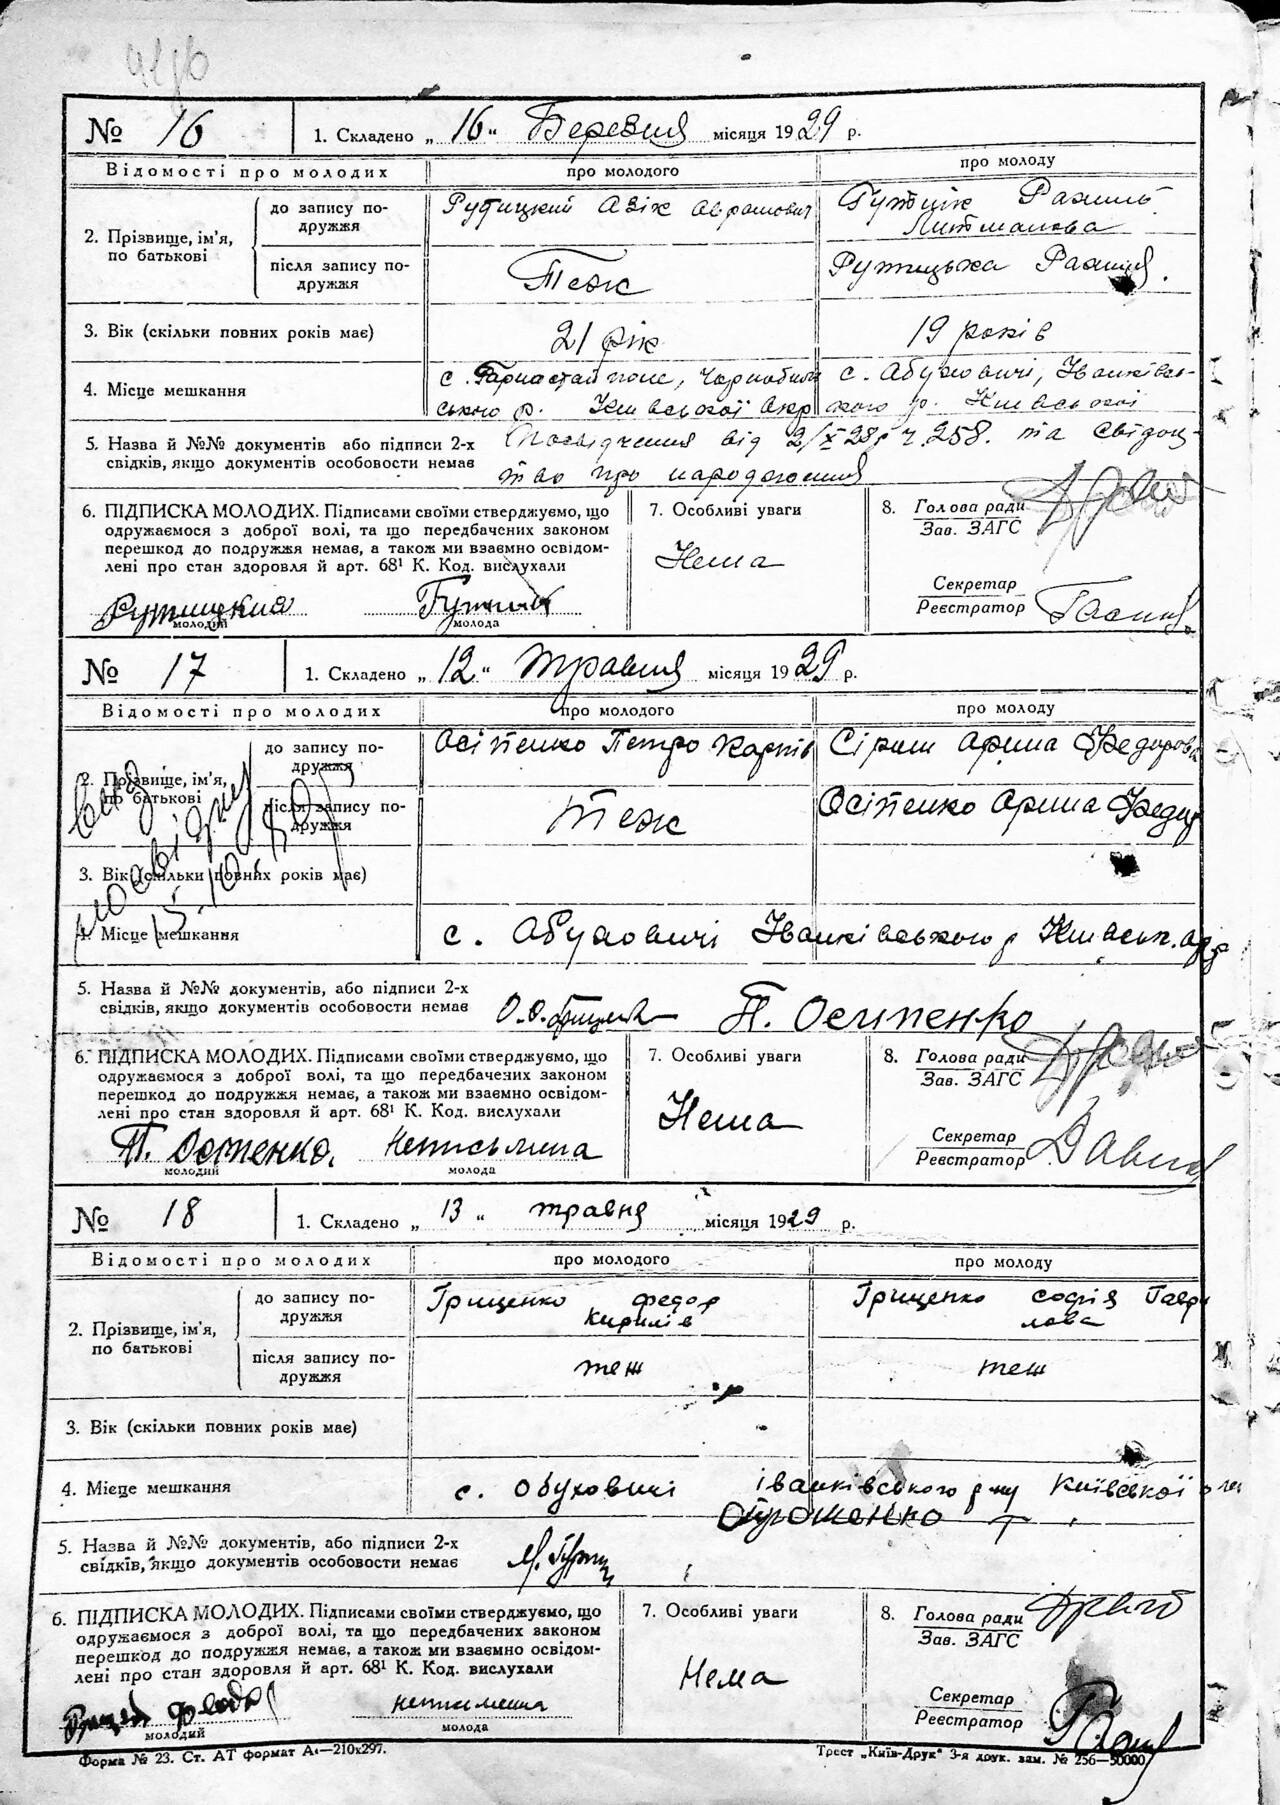 № 16 1. Складено „ 16 “ Березня місяця 1929 р.
Відомості про молодих про молодого про молоду
2. Прізвище, ім’я, по батькові
до запису подружжя
Рутицкий Азік Аврамович
Гутнік Рахиль
Литманова
після запису подружжя
Теж
Рутицька Рахиля.
3. Вік (скільки повних років має) 21 рік 19 років
4. Місце мешкання
с. Гарностайполе, Чорнобиль-
ського р. Київської окр
с. Абуховичі, Іванківсь-
кого р. Київської
5. Назва й №№ документів або підписи 2-х
свідків, якщо документів особовости немає
Посвідчення від 2/X 28 р ч. 258. та свідоц-
тво про народження
6. ПІДПИСКА МОЛОДИХ. Підписами своїми стверджуємо, що
одружаємося з доброї волі, та що передбачених законом
перешкод до подружжя немає, а також ми взаємно освідом-
лені про стан здоровля й арт. 68¹ К. Код. вислухали
молодий молода
7. Особливі уваги
Нема
8. Голова ради
Зав. ЗАГС
Секретар
Реєстратор
№ 17 1. Складено „ 12 “ травня місяця 1929 р.
Відомості про молодих про молодого про молоду
2. Прізвище, ім’я,
по батькові
до запису по-
дружжя
Осіпенко Петро Карпів
Сіраш Орина Федорова
після запису по-
дружжя
Теж
Осіпенко Орина Федор
3. Вік (скільки повних років має)
15.10
4. Місце мешкання
с. Абуховичі Іванківського р Київськ. окр
5. Назва й №№ документів, або підписи 2-х
свідків, якщо документів особовости немає
П. Осипенко
6. ПІДПИСКА МОЛОДИХ. Підписами своїми стверджуємо, що
одружаємося з доброї волі, та що передбачених законом
перешкод до подружжя немає, а також ми взаємно освідом-
лені про стан здоровля й арт. 68¹ К. Код. вислухали
П. Осипенко. Неписьмена
молодий молода
7. Особливі уваги
Нема
8. Голова ради
Зав. ЗАГС
Секретар
Реєстратор
№ 18 1. Складено „ 13 “ травня місяця 1929 р.
Відомості про молодих про молодого про молоду
2. Прізвище, ім’я,
по батькові
до запису по-
дружжя
Грищенко Федор
Кирилів
Грищенко Софія Гаври
лова
після запису по-
дружжя
теж
теж
3. Вік (скільки повних років має)
4. Місце мешкання
с. Обуховичі іванківського р-ну Київської
5. Назва й №№ документів, або підписи 2-х
свідків, якщо документів особовости немає
6. ПІДПИСКА МОЛОДИХ. Підписами своїми стверджуємо, що
одружаємося з доброї волі, та що передбачених законом
перешкод до подружжя немає, а також ми взаємно освідом-
лені про стан здоровля й арт. 68¹ К. Код. вислухали
неписьмена
молодий молода
7. Особливі уваги
Нема
8. Голова ради
Зав. ЗАГС
Секретар
Реєстратор
Форма № 23. Ст. АТ формат А₄—210х297.
Трест „Київ-Друк“ 3-я друк. зам. № 256—50000